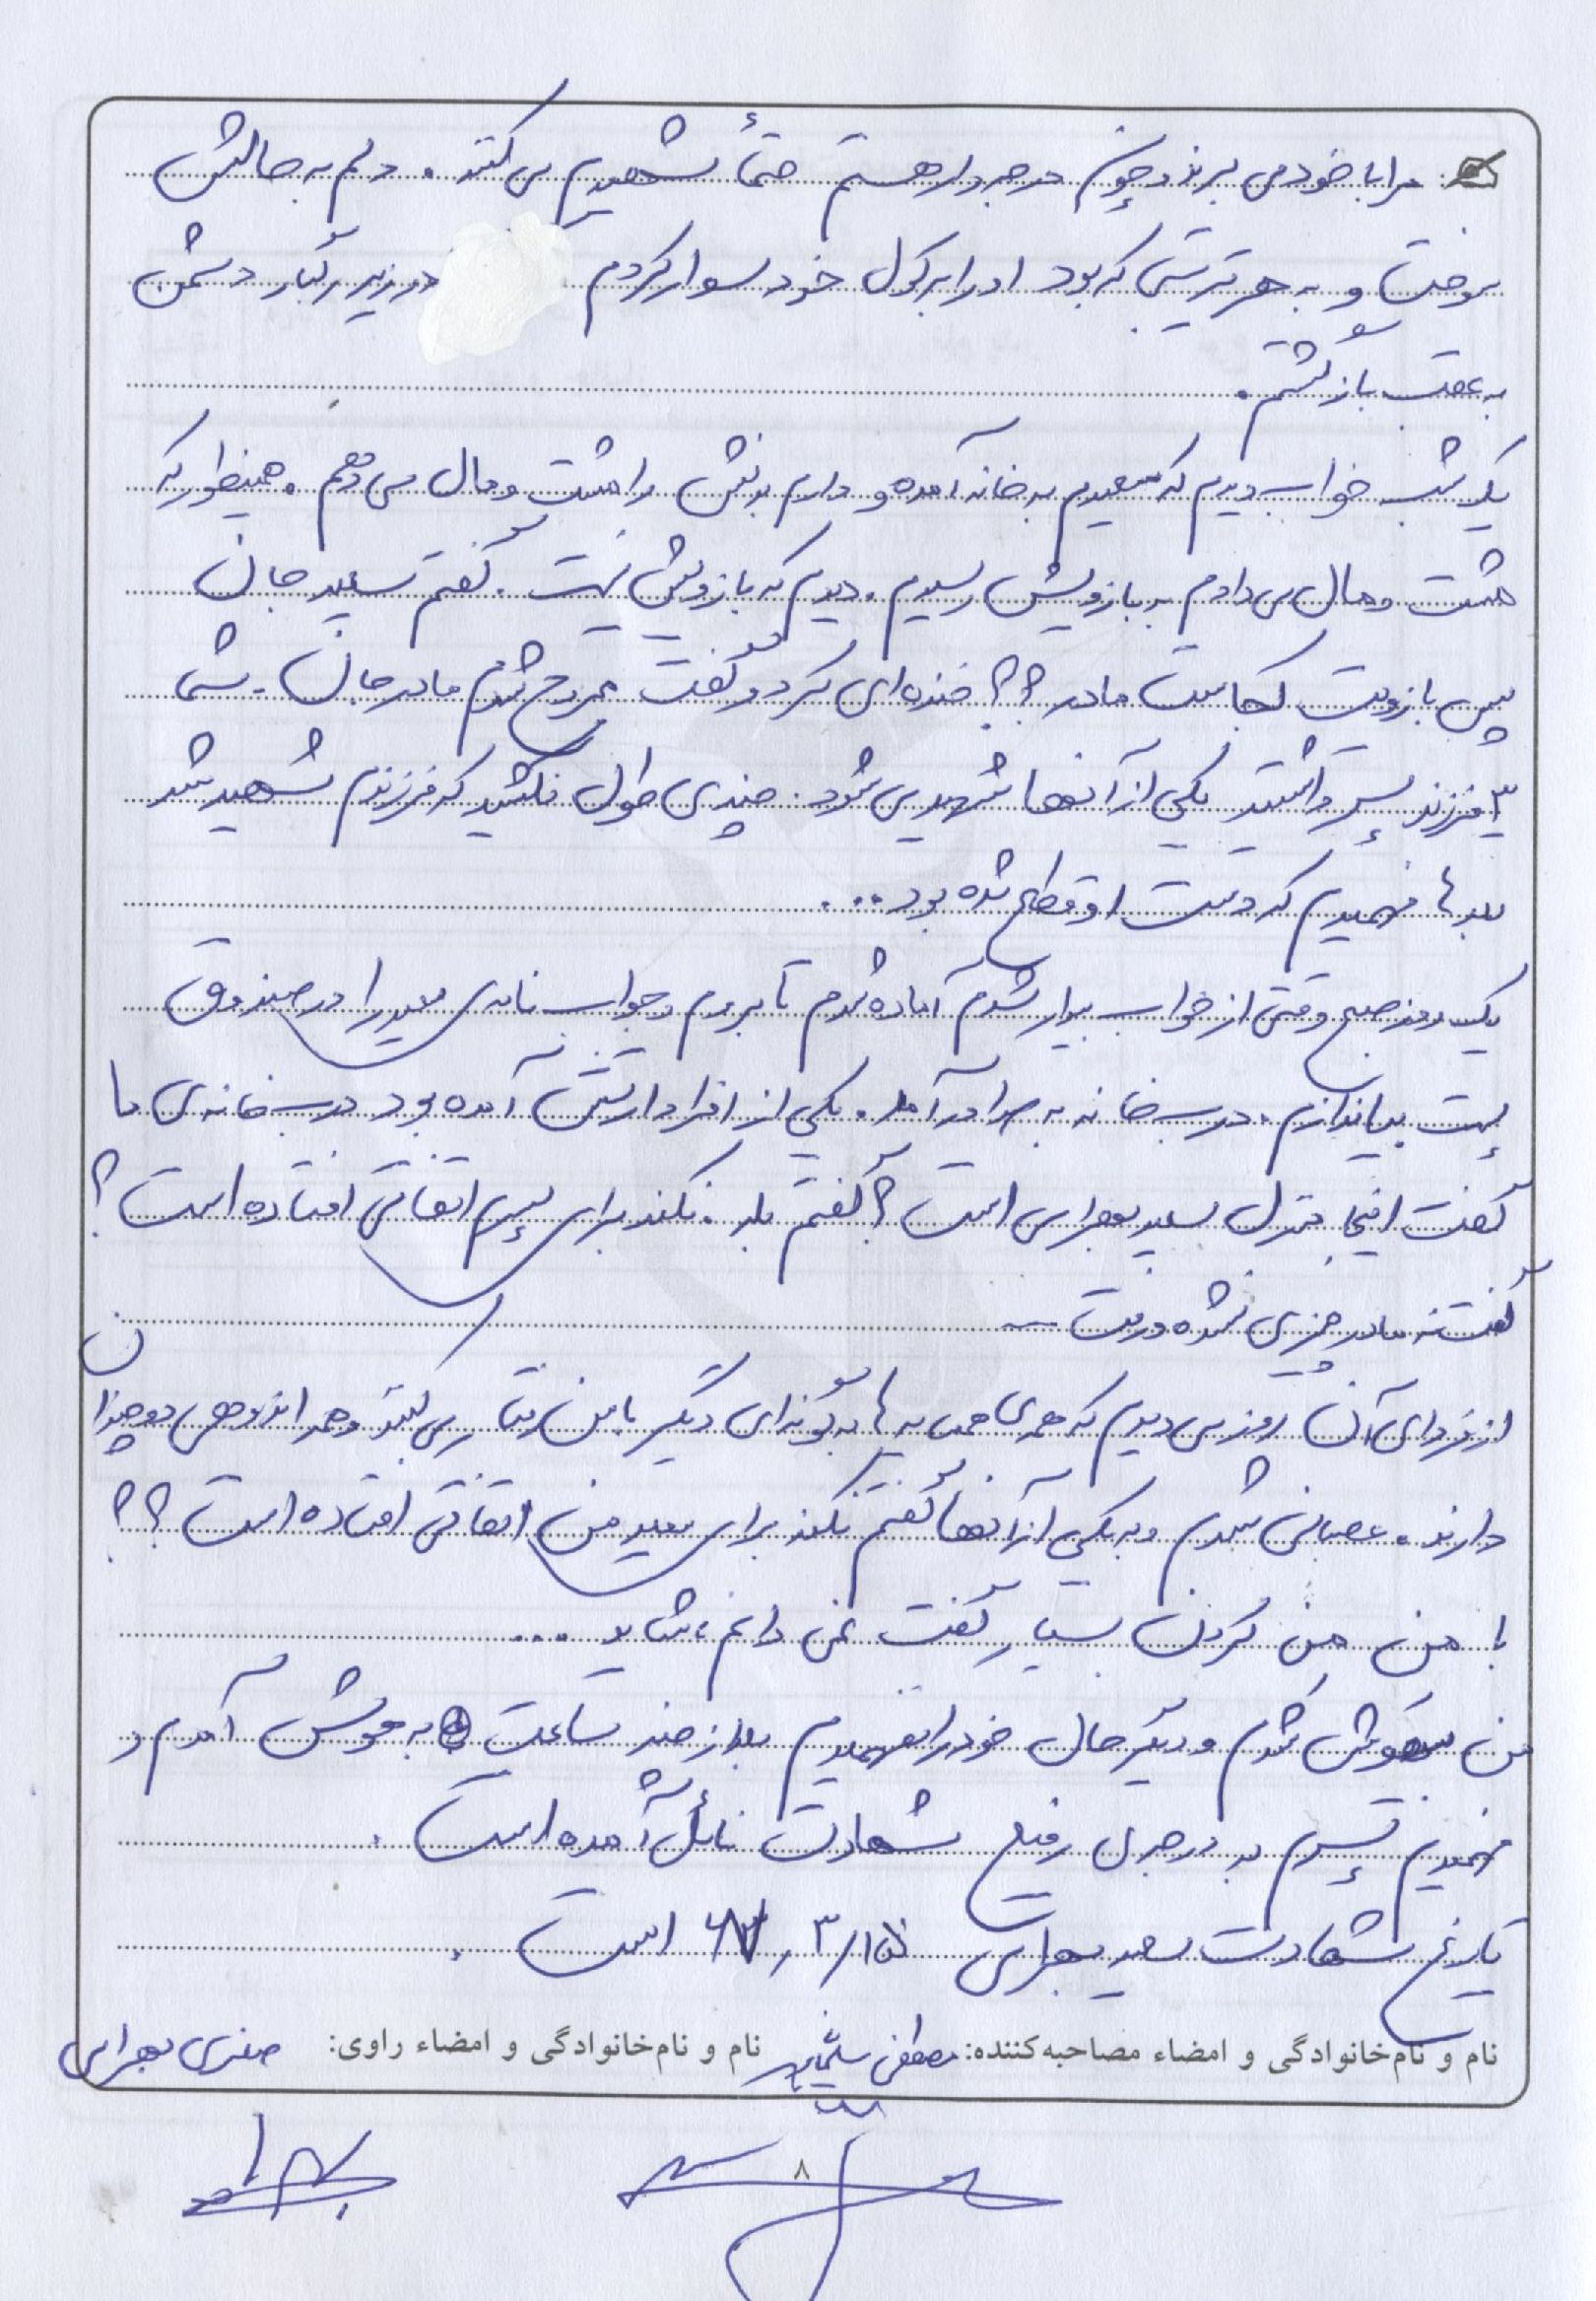 مرا با خود می برند و چون درجه دار هستم حتماً شهیدم می کنند . دلم به حالش
سوخت و به هر ترتیبی که بود او را بر کول خود سوار کردم در زیر رگبار دشمن
به عقب بازگشتم .
یک شب خواب دیدم که سعیدم به خانه آمده و دارم بدنش را مشت و مال می دهم . همینطور که
مشت و مال می دادم به بازویش رسیدم . دیدم که بازویش نیست . گفتم سعید جان
پس بازویت کجاست مادر ؟؟ خنده ای کرد و گفت مجروح شدم مادر جان . شما
۳ فرزند پسر داشتید یکی از آنها شهید می شود . چندی طول نکشید که فرزندم شهید شد
بعدها فهمیدم که دست او قطع شده بود ...
یک روز صبح وقتی از خواب بیدار شدم آماده شدم تا بروم و جواب نامه ی سعید را در صندوق
پست بیاندازم . درب خانه به صدا در آمد . یکی از افراد ارتش آمده بود درب خانه ی ما
گفت اینجا منزل سعید بهرامی است ؟ گفتم بله . نکند برای پسرم اتفاقی افتاده است ؟
گفت نه مادر چیزی نشده و رفت
از فردای آن روز می دیدم که همه ی همسایه ها به گونه ای دیگر با من رفتار می کنند و همه اندوهی دو چندان
دارند . عصبانی شدم و به یکی از آنها گفتم نکند برای سعید من اتفاقی افتاده است ؟؟
با من من کردن بسیار گفت نمی دانم ، شاید ...
من بیهوش شدم و دیگر حال خود را نفهمیدم بعد از چند ساعت به هوش آمدم و
فهمیدم پسرم به درجه ی رفیع شهادت نائل آمده است .
تاریخ شهادت سعید بهرامی است .
نام و نام‌خانوادگی و امضاء مصاحبه‌کننده: مصطفی نام و نام‌خانوادگی و امضاء راوی: صغری بهرامی
۸